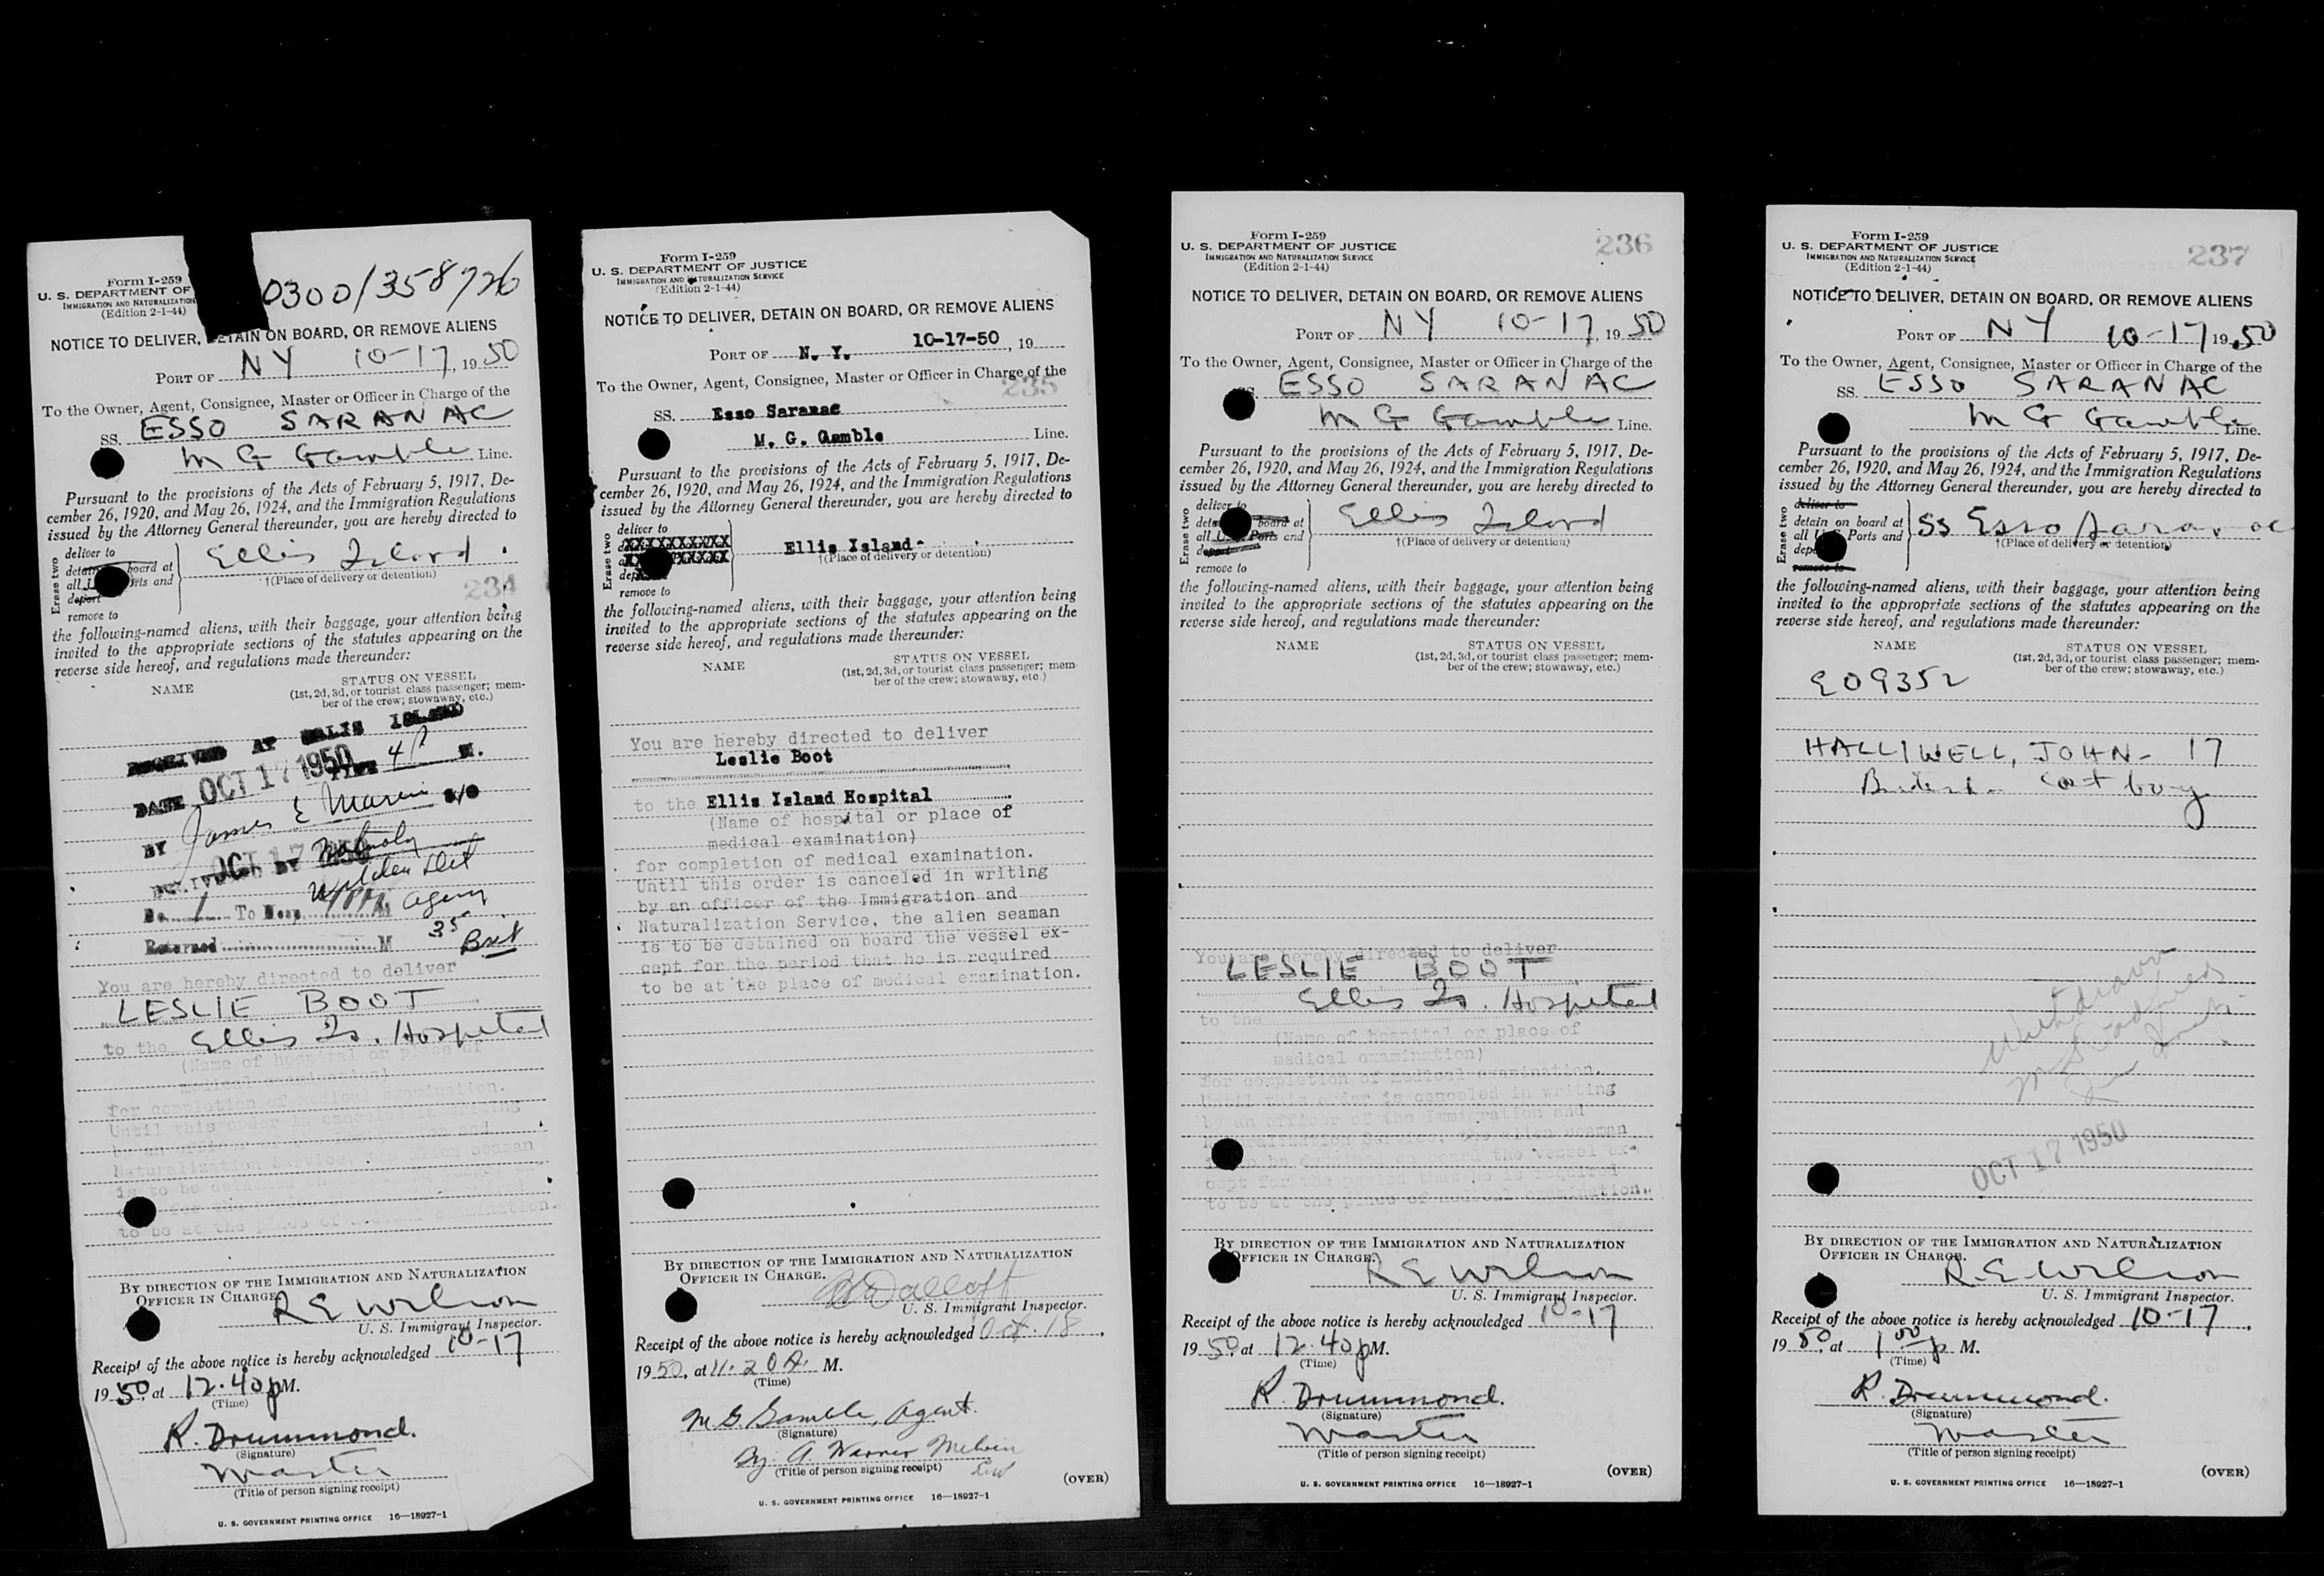 Form I-259
U. S. DEPARTMENT OF
IMMIGRATION AND NATURALIZATION
(Edition 2-1-44)
0300/358726
NOTICE TO DELIVER, DETAIN ON BOARD, OR REMOVE ALIENS
PORT OF NY 10-17, 1950
To the Owner, Agent, Consignee, Master or Officer in Charge of the
SS. ESSO SARANAC
M G Gamble Line.
Pursuant to the provisions of the Acts of February 5, 1917, De-
cember 26, 1920, and May 26, 1924, and the Immigration Regulations
issued by the Attorney General thereunder, you are hereby directed to
Erase two
deliver to
board at
all
and
deport
remove to
Ellis Island
†(Place of delivery or detention)
234
the following-named aliens, with their baggage, your attention being
invited to the appropriate sections of the statutes appearing on the
reverse side hereof, and regulations made thereunder:
NAME
STATUS ON VESSEL
(1st, 2d, 3d, or tourist class passenger; mem-
ber of the crew; stowaway, etc.)
RECEIVED AT ELLIS ISLAND
DATE OCT 17 1950 TIME 4 P M.
BY James E
OCT 17
BY
No. 1 To Hosp. M agency
Returned M 35 Brit
You are hereby directed to deliver
LESLIE BOOT
to the Ellis Is. Hospital
(Name of hospital or place of
medical examination)
for completion of medical examination.
Until this order is canceled in writing
by an officer of the Immigration and
Naturalization Service, the alien seaman
is to be detained
to be at the place of medical examination.
BY DIRECTION OF THE IMMIGRATION AND NATURALIZATION
OFFICER IN CHARGE.
R E Wilson
U. S. Immigrant Inspector.
Receipt of the above notice is hereby acknowledged 10-17
1950, at 12.40 p M.
(Time)
R. Drummond.
(Signature)
Master
(Title of person signing receipt)
U. S. GOVERNMENT PRINTING OFFICE 16—18927-1
Form I-259
U. S. DEPARTMENT OF JUSTICE
IMMIGRATION AND NATURALIZATION SERVICE
(Edition 2-1-44)
NOTICE TO DELIVER, DETAIN ON BOARD, OR REMOVE ALIENS
PORT OF N. Y. 10-17-50, 19
To the Owner, Agent, Consignee, Master or Officer in Charge of the
235
SS. Esso Saranac
M. G. Gamble Line.
Pursuant to the provisions of the Acts of February 5, 1917, De-
cember 26, 1920, and May 26, 1924, and the Immigration Regulations
issued by the Attorney General thereunder, you are hereby directed to
Erase two
deliver to
remove to
Ellis Island
†(Place of delivery or detention)
the following-named aliens, with their baggage, your attention being
invited to the appropriate sections of the statutes appearing on the
reverse side hereof, and regulations made thereunder:
NAME
STATUS ON VESSEL
(1st, 2d, 3d, or tourist class passenger; mem-
ber of the crew; stowaway, etc.)
You are hereby directed to deliver
Leslie Boot
to the Ellis Island Hospital
(Name of hospital or place of
medical examination)
for completion of medical examination.
Until this order is canceled in writing
by an officer of the Immigration and
Naturalization Service, the alien seaman
is to be detained on board the vessel ex-
cept for the period that he is required
to be at the place of medical examination.
BY DIRECTION OF THE IMMIGRATION AND NATURALIZATION
OFFICER IN CHARGE.
U. S. Immigrant Inspector.
Receipt of the above notice is hereby acknowledged Oct. 18,
1950, at 11.20 A. M.
(Time)
M. G. Gamble, Agent.
(Signature)
By. A. Warner Melvin
(Title of person signing receipt)
(OVER)
U. S. GOVERNMENT PRINTING OFFICE 16—18927-1
Form I-259
U. S. DEPARTMENT OF JUSTICE
IMMIGRATION AND NATURALIZATION SERVICE
(Edition 2-1-44)
236
NOTICE TO DELIVER, DETAIN ON BOARD, OR REMOVE ALIENS
PORT OF NY 10-17, 1950
To the Owner, Agent, Consignee, Master or Officer in Charge of the
SS. ESSO SARANAC
M G Gamble Line.
Pursuant to the provisions of the Acts of February 5, 1917, De-
cember 26, 1920, and May 26, 1924, and the Immigration Regulations
issued by the Attorney General thereunder, you are hereby directed to
Erase two
deliver to
board at
all U. S. Ports and
deport
remove to
Ellis Island
†(Place of delivery or detention)
the following-named aliens, with their baggage, your attention being
invited to the appropriate sections of the statutes appearing on the
reverse side hereof, and regulations made thereunder:
NAME
STATUS ON VESSEL
(1st, 2d, 3d, or tourist class passenger; mem-
ber of the crew; stowaway, etc.)
You are hereby directed to deliver
LESLIE BOOT
Ellis Is. Hospital
to the
(Name of hospital or place of
medical examination)
for completion of medical examination.
Until this order is canceled in writing
by an officer of the Immigration and
Naturalization Service, the alien seaman
is to be detained on board the vessel ex-
cept for the period that he is required
to be at the place of medical examination.
BY DIRECTION OF THE IMMIGRATION AND NATURALIZATION
OFFICER IN CHARGE.
R E Wilson
U. S. Immigrant Inspector.
Receipt of the above notice is hereby acknowledged 10-17
1950, at 12.40 p M.
(Time)
R. Drummond.
(Signature)
Master
(Title of person signing receipt)
(OVER)
U. S. GOVERNMENT PRINTING OFFICE 16—18927-1
Form I-259
U. S. DEPARTMENT OF JUSTICE
IMMIGRATION AND NATURALIZATION SERVICE
(Edition 2-1-44)
237
NOTICE TO DELIVER, DETAIN ON BOARD, OR REMOVE ALIENS
PORT OF NY 10-17 1950
To the Owner, Agent, Consignee, Master or Officer in Charge of the
SS. ESSO SARANAC
M G Gamble Line.
Pursuant to the provisions of the Acts of February 5, 1917, De-
cember 26, 1920, and May 26, 1924, and the Immigration Regulations
issued by the Attorney General thereunder, you are hereby directed to
Erase two
deliver to
detain on board at
all U. S. Ports and
remove to
SS Esso Saranac
†(Place of delivery or detention)
the following-named aliens, with their baggage, your attention being
invited to the appropriate sections of the statutes appearing on the
reverse side hereof, and regulations made thereunder:
NAME
STATUS ON VESSEL
(1st, 2d, 3d, or tourist class passenger; mem-
ber of the crew; stowaway, etc.)
E09352
HALLIWELL, JOHN - 17
British cat boy
Withdrawn
OCT 17 1950
BY DIRECTION OF THE IMMIGRATION AND NATURALIZATION
OFFICER IN CHARGE.
R. E. Wilson
U. S. Immigrant Inspector.
Receipt of the above notice is hereby acknowledged 10-17,
1950, at 1 00 p M.
(Time)
R. Drummond.
(Signature)
Master
(Title of person signing receipt)
(OVER)
U. S. GOVERNMENT PRINTING OFFICE 16—18927-1